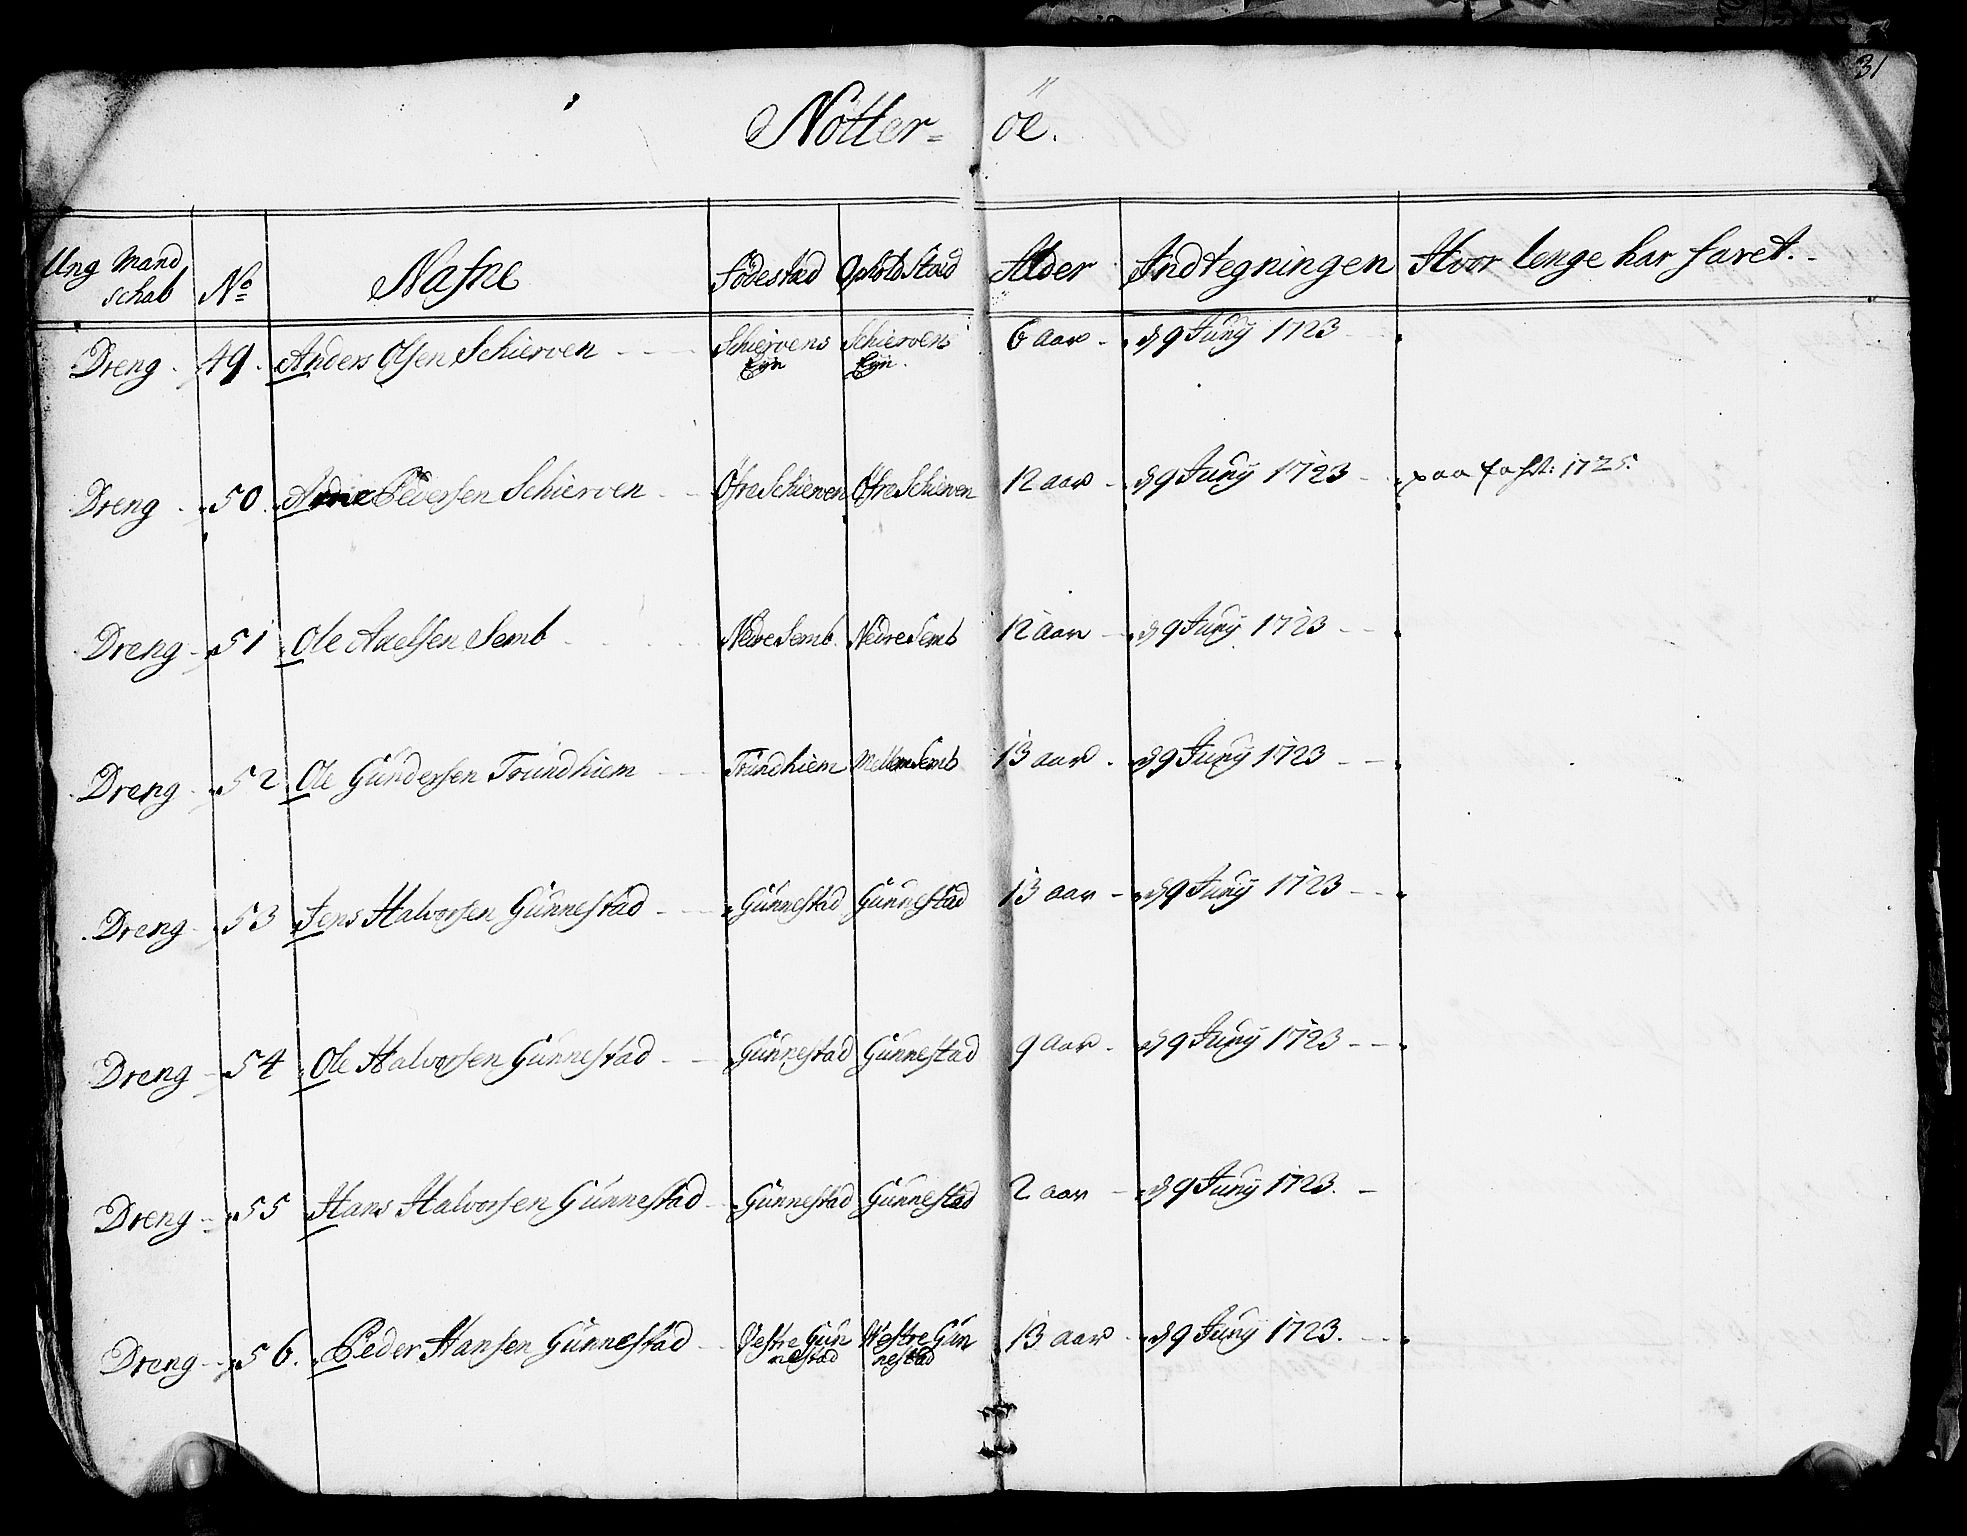 31
Nötter= öe.
Ung Mand schab No Nafne Födestad Opholdstad Alder Indtegningen Hvor lenge har faret.
Dreng 49. Anders Olsen Schierven Schiervens Eÿn Schiervens Eÿn. 6 aar d 9 Junÿ 1723
Dreng 50 Pedersen Schierven Öfre Schierven Öfre Schierven 12 aar d 9 Junÿ 1723 1725.
Dreng 51 Ole Axelsen Semb Nedre Semb Nedre Semb 12 aar d 9 Junÿ 1723
Dreng 52 Ole Gündersen Tründhiem Tründhiem Mellem Semb 13 aar d 9 Junÿ 1723
Dreng 53 Jens Halvorsen Günnestad Günnestad Günnestad 13 aar d 9 Junÿ 1723
Dreng 54 Ole Halvorsen Günnestad Günnestad Günnestad 9 aar d 9 Junÿ 1723
Dreng 55 Hans Halvorsen Günnestad Günnestad Günnestad 2 aar d 9 Junÿ 1723.
Dreng 56. Peder Hansen Günnestad Vestre Gün nestad Westre Gün nestad 13 aar d 9 Junÿ 1723.